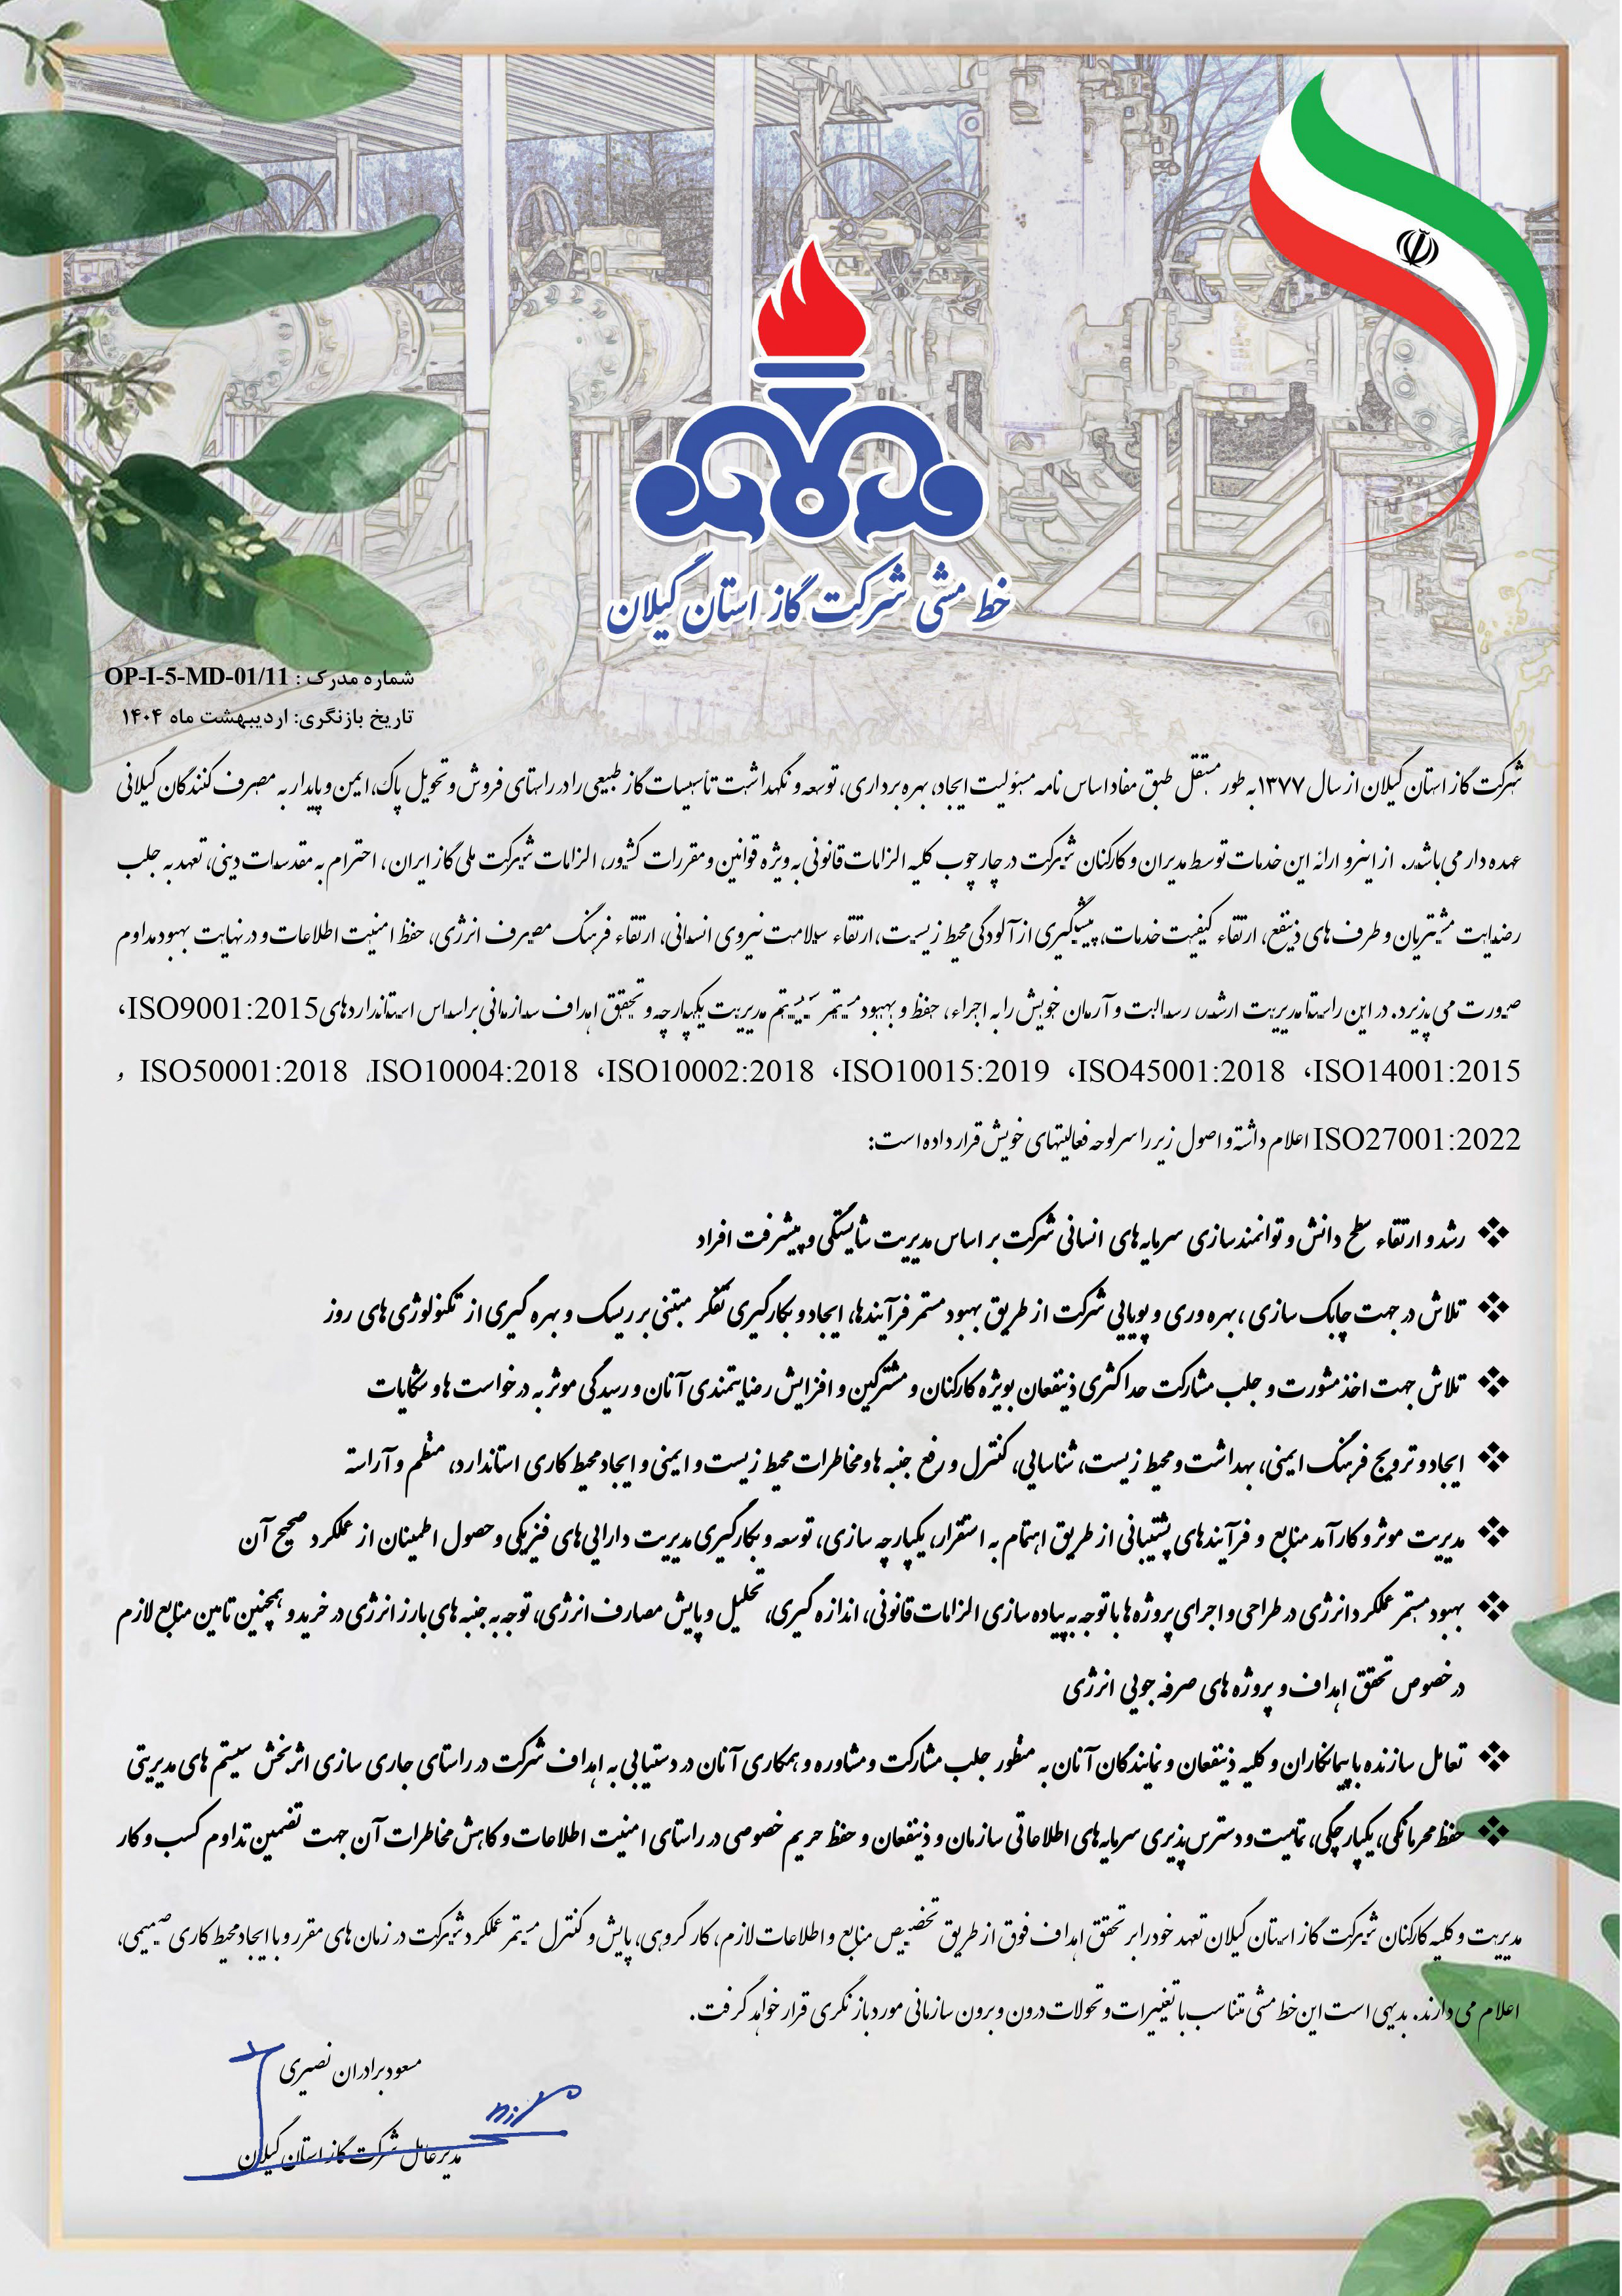 خط مشی شرکت گاز استان گیلان
شماره مدرک : OP-I-5-MD-01/11
تاریخ بازنگری: اردیبهشت ماه ۱۴۰۴
شرکت گاز استان گیلان از سال ۱۳۷۷ به طور مستقل طبق مفاد اساس نامه مسئولیت ایجاد، بهره برداری، توسعه و نگهداشت تأسیسات گاز طبیعی را در راستای فروش و تحویل پاک، ایمن و پایدار به مصرف کنندگان گیلانی
عهده دار می باشد. از اینرو ارائه این خدمات توسط مدیران و کارکنان شرکت در چارچوب کلیه الزامات قانونی به ویژه قوانین و مقررات کشور، الزامات شرکت ملی گاز ایران، احترام به مقدسات دینی، تعهد به جلب
رضایت مشتریان و طرف های ذینفع، ارتقاء کیفیت خدمات، پیشگیری از آلودگی محیط زیست، ارتقاء سلامت نیروی انسانی، ارتقاء فرهنگ مصرف انرژی، حفظ امنیت اطلاعات و در نهایت بهبود مداوم
صورت می پذیرد. در این راستا مدیریت ارشد، رسالت و آرمان خویش را به اجراء، حفظ و بهبود مستمر سیستم مدیریت یکپارچه و تحقق اهداف سازمانی براساس استانداردهای ISO9001:2015،
ISO14001:2015، ISO45001:2018، ISO10015:2019، ISO10002:2018، ISO10004:2018، ISO50001:2018 و
ISO27001:2022 اعلام داشته و اصول زیر را سرلوحه فعالیتهای خویش قرار داده است:
❖ رشد و ارتقاء سطح دانش و توانمندسازی سرمایه های انسانی شرکت بر اساس مدیریت شایستگی و پیشرفت افراد
❖ تلاش در جهت چابک سازی، بهره وری و پویایی شرکت از طریق بهبود مستمر فرآیندها، ایجاد و بکارگیری تفکر مبتنی بر ریسک و بهره گیری از تکنولوژی های روز
❖ تلاش جهت اخذ مشورت و جلب مشارکت حداکثری ذینفعان بویژه کارکنان و مشترکین و افزایش رضایتمندی آنان و رسیدگی موثر به درخواست ها و شکایات
❖ ایجاد و ترویج فرهنگ ایمنی، بهداشت و محیط زیست، شناسایی، کنترل و رفع جنبه ها و مخاطرات محیط زیست و ایمنی و ایجاد محیط کاری استاندارد، منظم و آراسته
❖ مدیریت موثر و کارآمد منابع و فرآیندهای پشتیبانی از طریق اهتمام به استقرار، یکپارچه سازی، توسعه و بکارگیری مدیریت دارایی های فیزیکی و حصول اطمینان از عملکرد صحیح آن
❖ بهبود مستمر عملکرد انرژی در طراحی و اجرای پروژه ها با توجه به پیاده سازی الزامات قانونی، اندازه گیری، تحلیل و پایش مصارف انرژی، توجه به جنبه های بارز انرژی در خرید و همچنین تامین منابع لازم
در خصوص تحقق اهداف و پروژه های صرفه جویی انرژی
❖ تعامل سازنده با پیمانکاران و کلیه ذینفعان و نمایندگان آنان به منظور جلب مشارکت و مشاوره و همکاری آنان در دستیابی به اهداف شرکت در راستای جاری سازی اثربخش سیستم های مدیریتی
❖ حفظ محرمانگی، یکپارچگی، تمامیت و دسترس پذیری سرمایه های اطلاعاتی سازمان و ذینفعان و حفظ حریم خصوصی در راستای امنیت اطلاعات و کاهش مخاطرات آن جهت تضمین تداوم کسب و کار
مدیریت و کلیه کارکنان شرکت گاز استان گیلان تعهد خود را بر تحقق اهداف فوق از طریق تخصیص منابع و اطلاعات لازم، کار گروهی، پایش و کنترل مستمر عملکرد شرکت در زمان های مقرر و با ایجاد محیط کاری صمیمی،
اعلام می دارند. بدیهی است این خط مشی متناسب با تغییرات و تحولات درون و برون سازمانی مورد بازنگری قرار خواهد گرفت.
مسعود برادران نصیری
مدیرعامل شرکت گاز استان گیلان